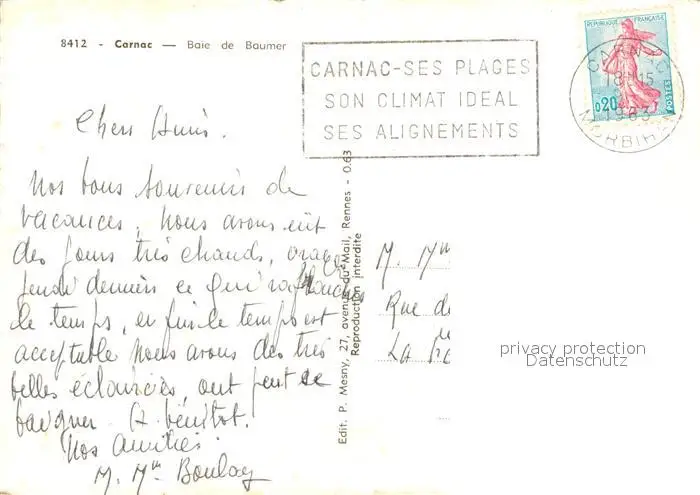 8412 - Carnac — Baie de Baumer
CARNAC-SES PLAGES
SON CLIMAT IDEAL
SES ALIGNEMENTS
REPUBLIQUE FRANÇAISE
0,20
POSTES
CARNAC
18H15
1963
MORBIHAN
Chers Amis.
Nos bons souvenirs de
vacances, nous avons eût
des jours très chauds, orage
jeudi dernier ce qui
le temps, enfin le temps est
acceptable nous avons des très
belles éclaircies, ont peut se
baigner. A bientot.
Nos Amitiés.
M. Mme Boulay
Edit. P. Mesny, 27, avenue du Mail, Rennes - 0.63
Reproduction interdite
M. Mme
Rue de
La
privacy protection
Datenschutz